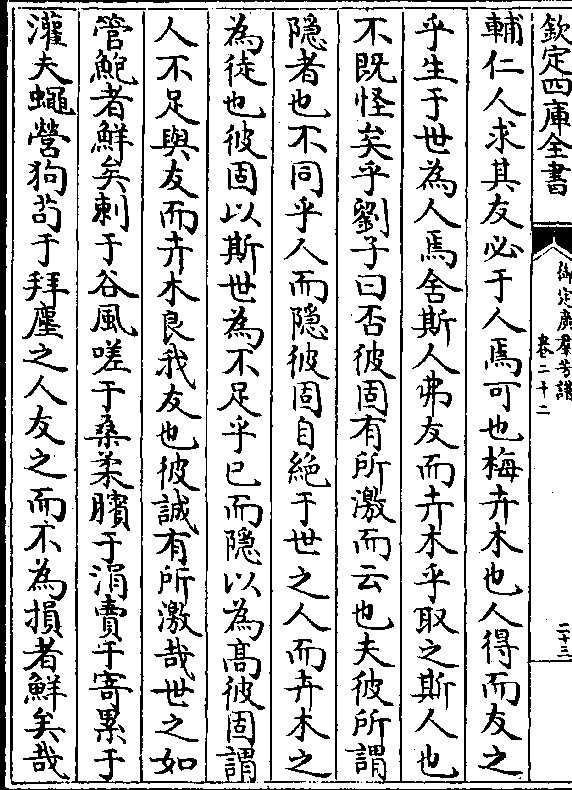 欽定四庫全書
御定廣羣芳譜
卷二十二
二十三
輔仁人求其友必于人焉可也梅卉木也人得而友之
乎生于世為人焉舍斯人弗友而卉木乎取之斯人也
不既怪矣乎劉子曰否彼固有所激而云也夫彼所謂
隠者也不同乎人而隠彼固自絶于世之人而卉木之
為徒也彼固以斯世為不足乎已而隠以為髙彼固謂
人不足與友而卉木良我友也彼誠有所激哉世之如
管鮑者鮮矣刺于谷風嗟于桑柔臏于涓賣于寄累于
灌夫蠅營狗茍于拜塵之人友之而不為損者鮮矣哉